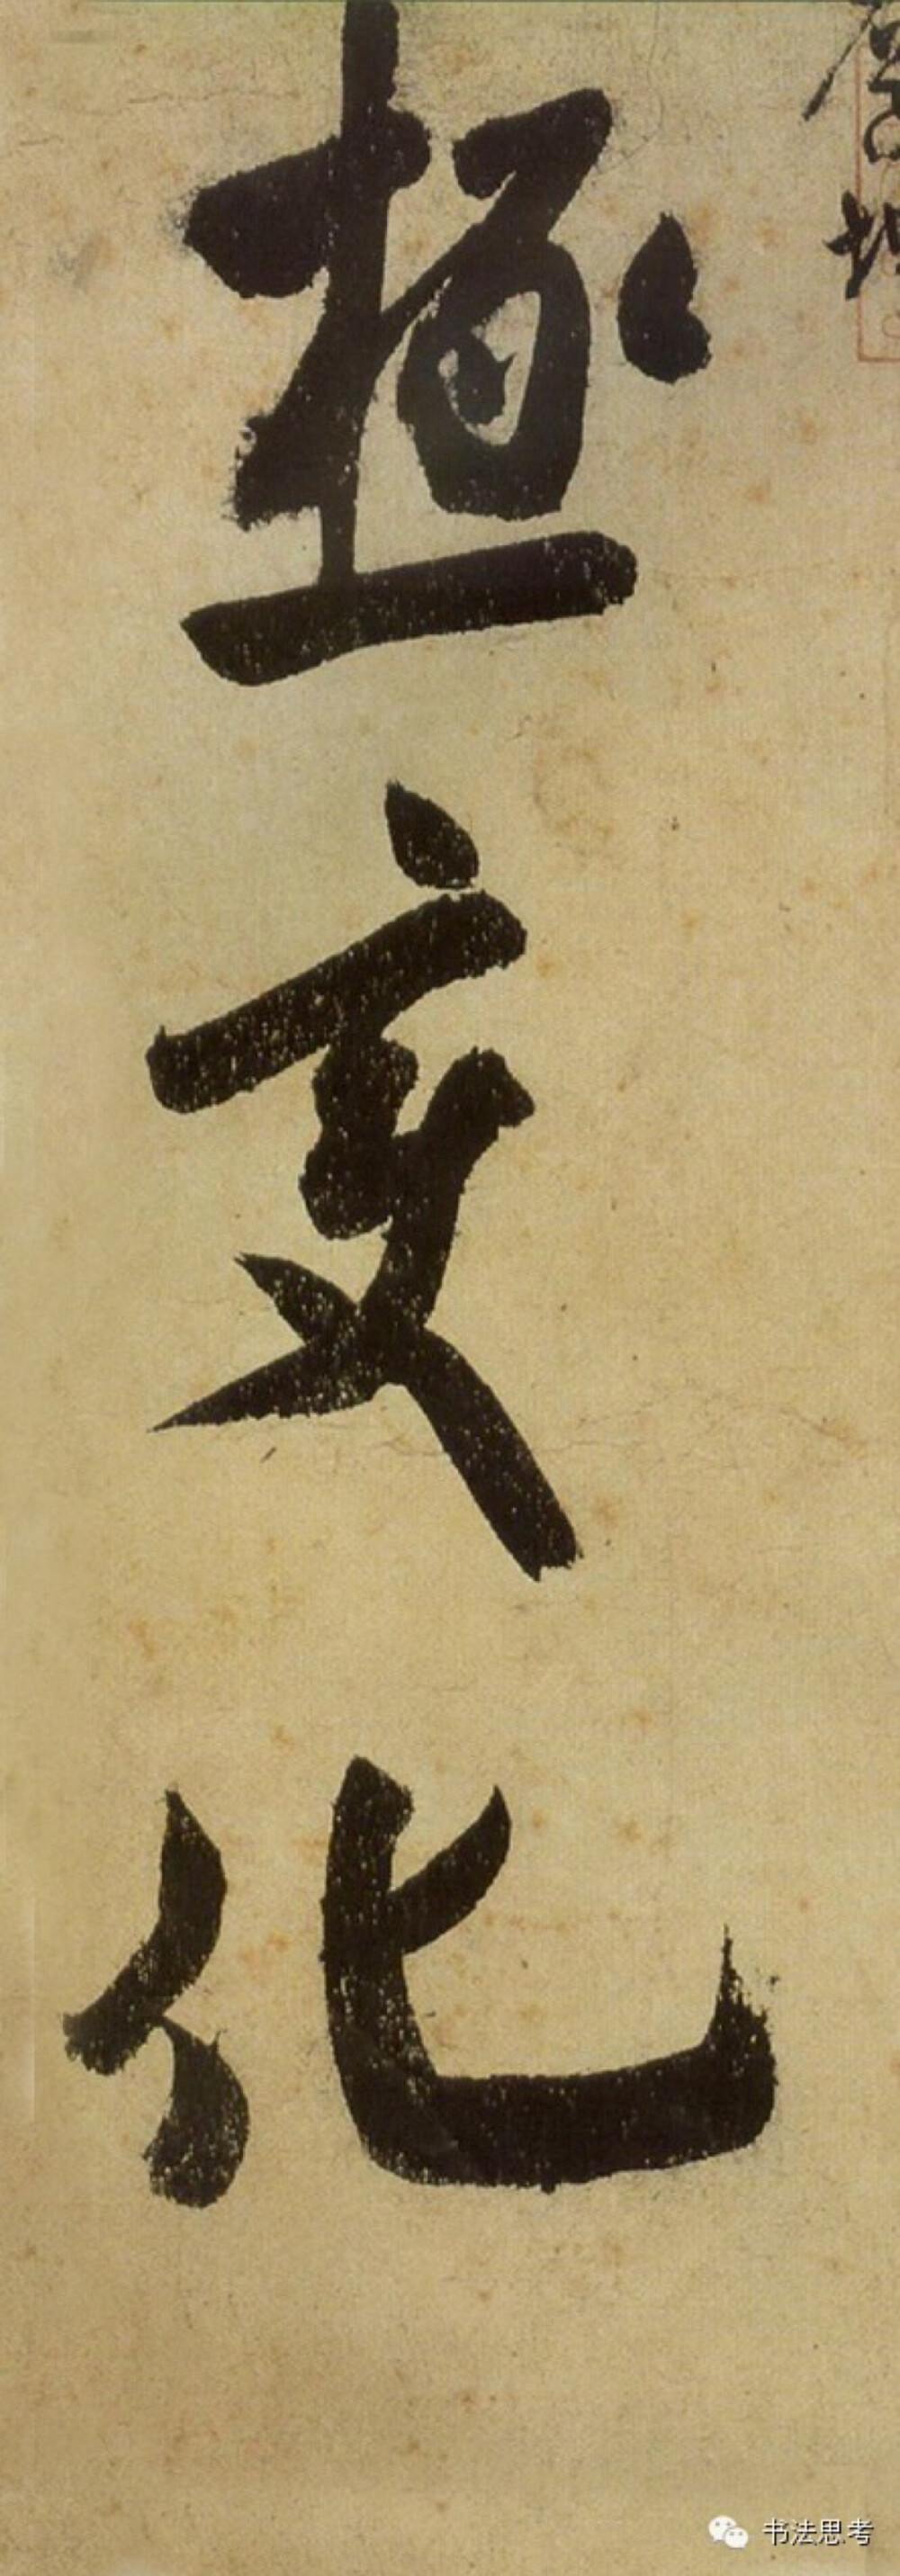 極變化
书法思考